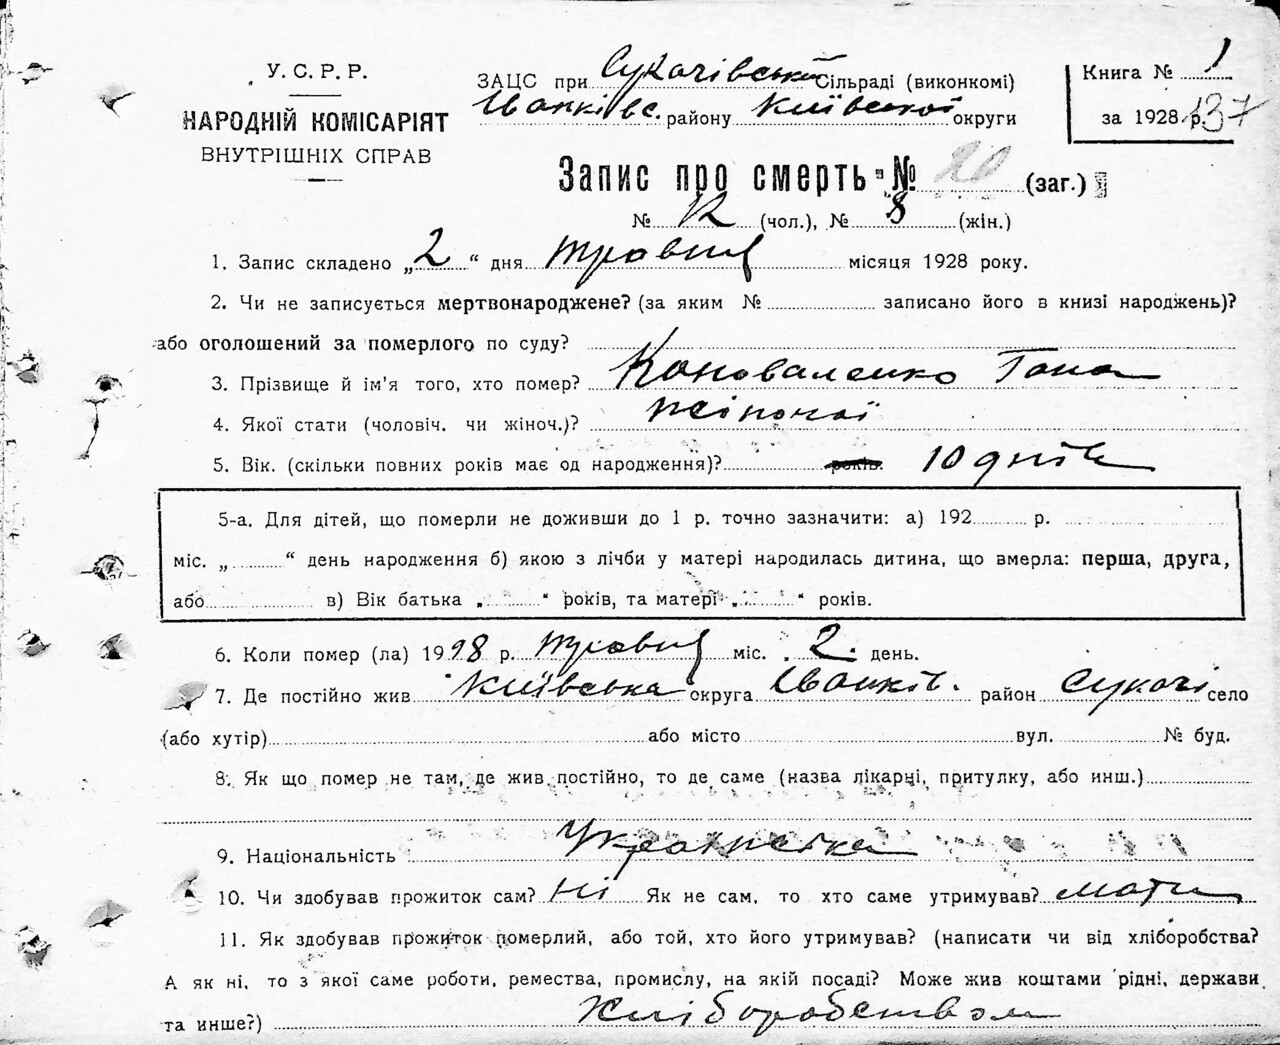 У. С. Р. Р.
НАРОДНІЙ КОМІСАРІЯТ
ВНУТРІШНІХ СПРАВ
ЗАЦС при Сукачівській Сільраді (виконкомі)
Іванківс. району Київської округи
Книга № 1
за 1928 р. 137
Запис про смерть № 20 (заг.)
№ 12 (чол.), № 8 (жін.)
1. Запис складено „ 2 “ дня травня місяця 1928 року.
2. Чи не записується мертвонароджене? (за яким № записано його в книзі народжень)?
або оголошений за померлого по суду?
3. Прізвище й ім'я того, хто помер? Коноваленко Гана
4. Якої стати (чоловіч. чи жіноч.)? жіночої
5. Вік. (скільки повних років має од народження)? років. 10 днів
5-а. Для дітей, що померли не доживши до 1 р. точно зазначити: а) 192 р.
міс. „ “ день народження б) якою з лічби у матері народилась дитина, що вмерла: перша, друга,
або в) Вік батька „ “ років, та матері „ “ років.
6. Коли помер (ла) 1928 р. травня міс. 2 день.
7. Де постійно жив Київська округа Іванків. район Сукачі село
(або хутір) або місто вул. № буд.
8. Як що помер не там, де жив постійно, то де саме (назва лікарні, притулку, або инш.)
9. Національність Українська
10. Чи здобував прожиток сам? Ні Як не сам, то хто саме утримував? мати
11. Як здобував прожиток померлий, або той, хто його утримував? (написати чи від хліборобства?
А як ні, то з якої саме роботи, ремества, промислу, на якій посаді? Може жив коштами рідні, держави
та инше?) Хліборобством